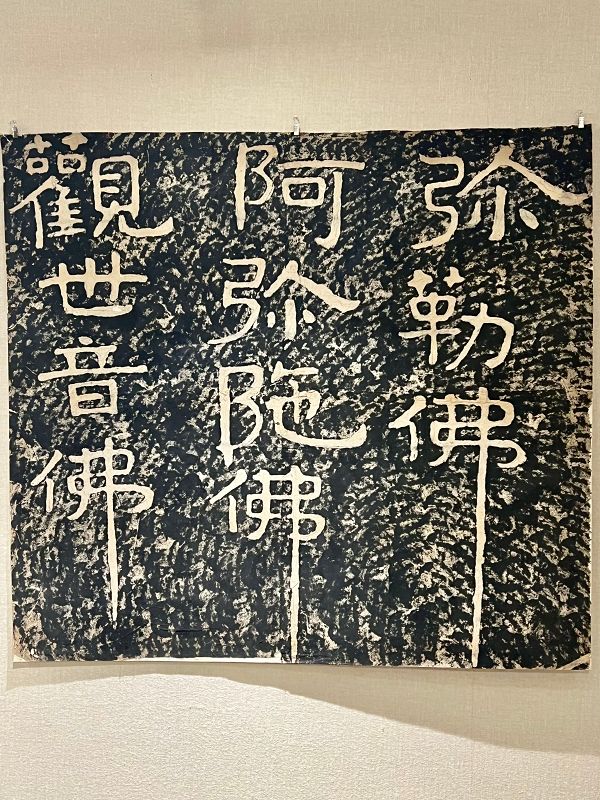 弥勒佛
阿弥陁佛
觀世音佛